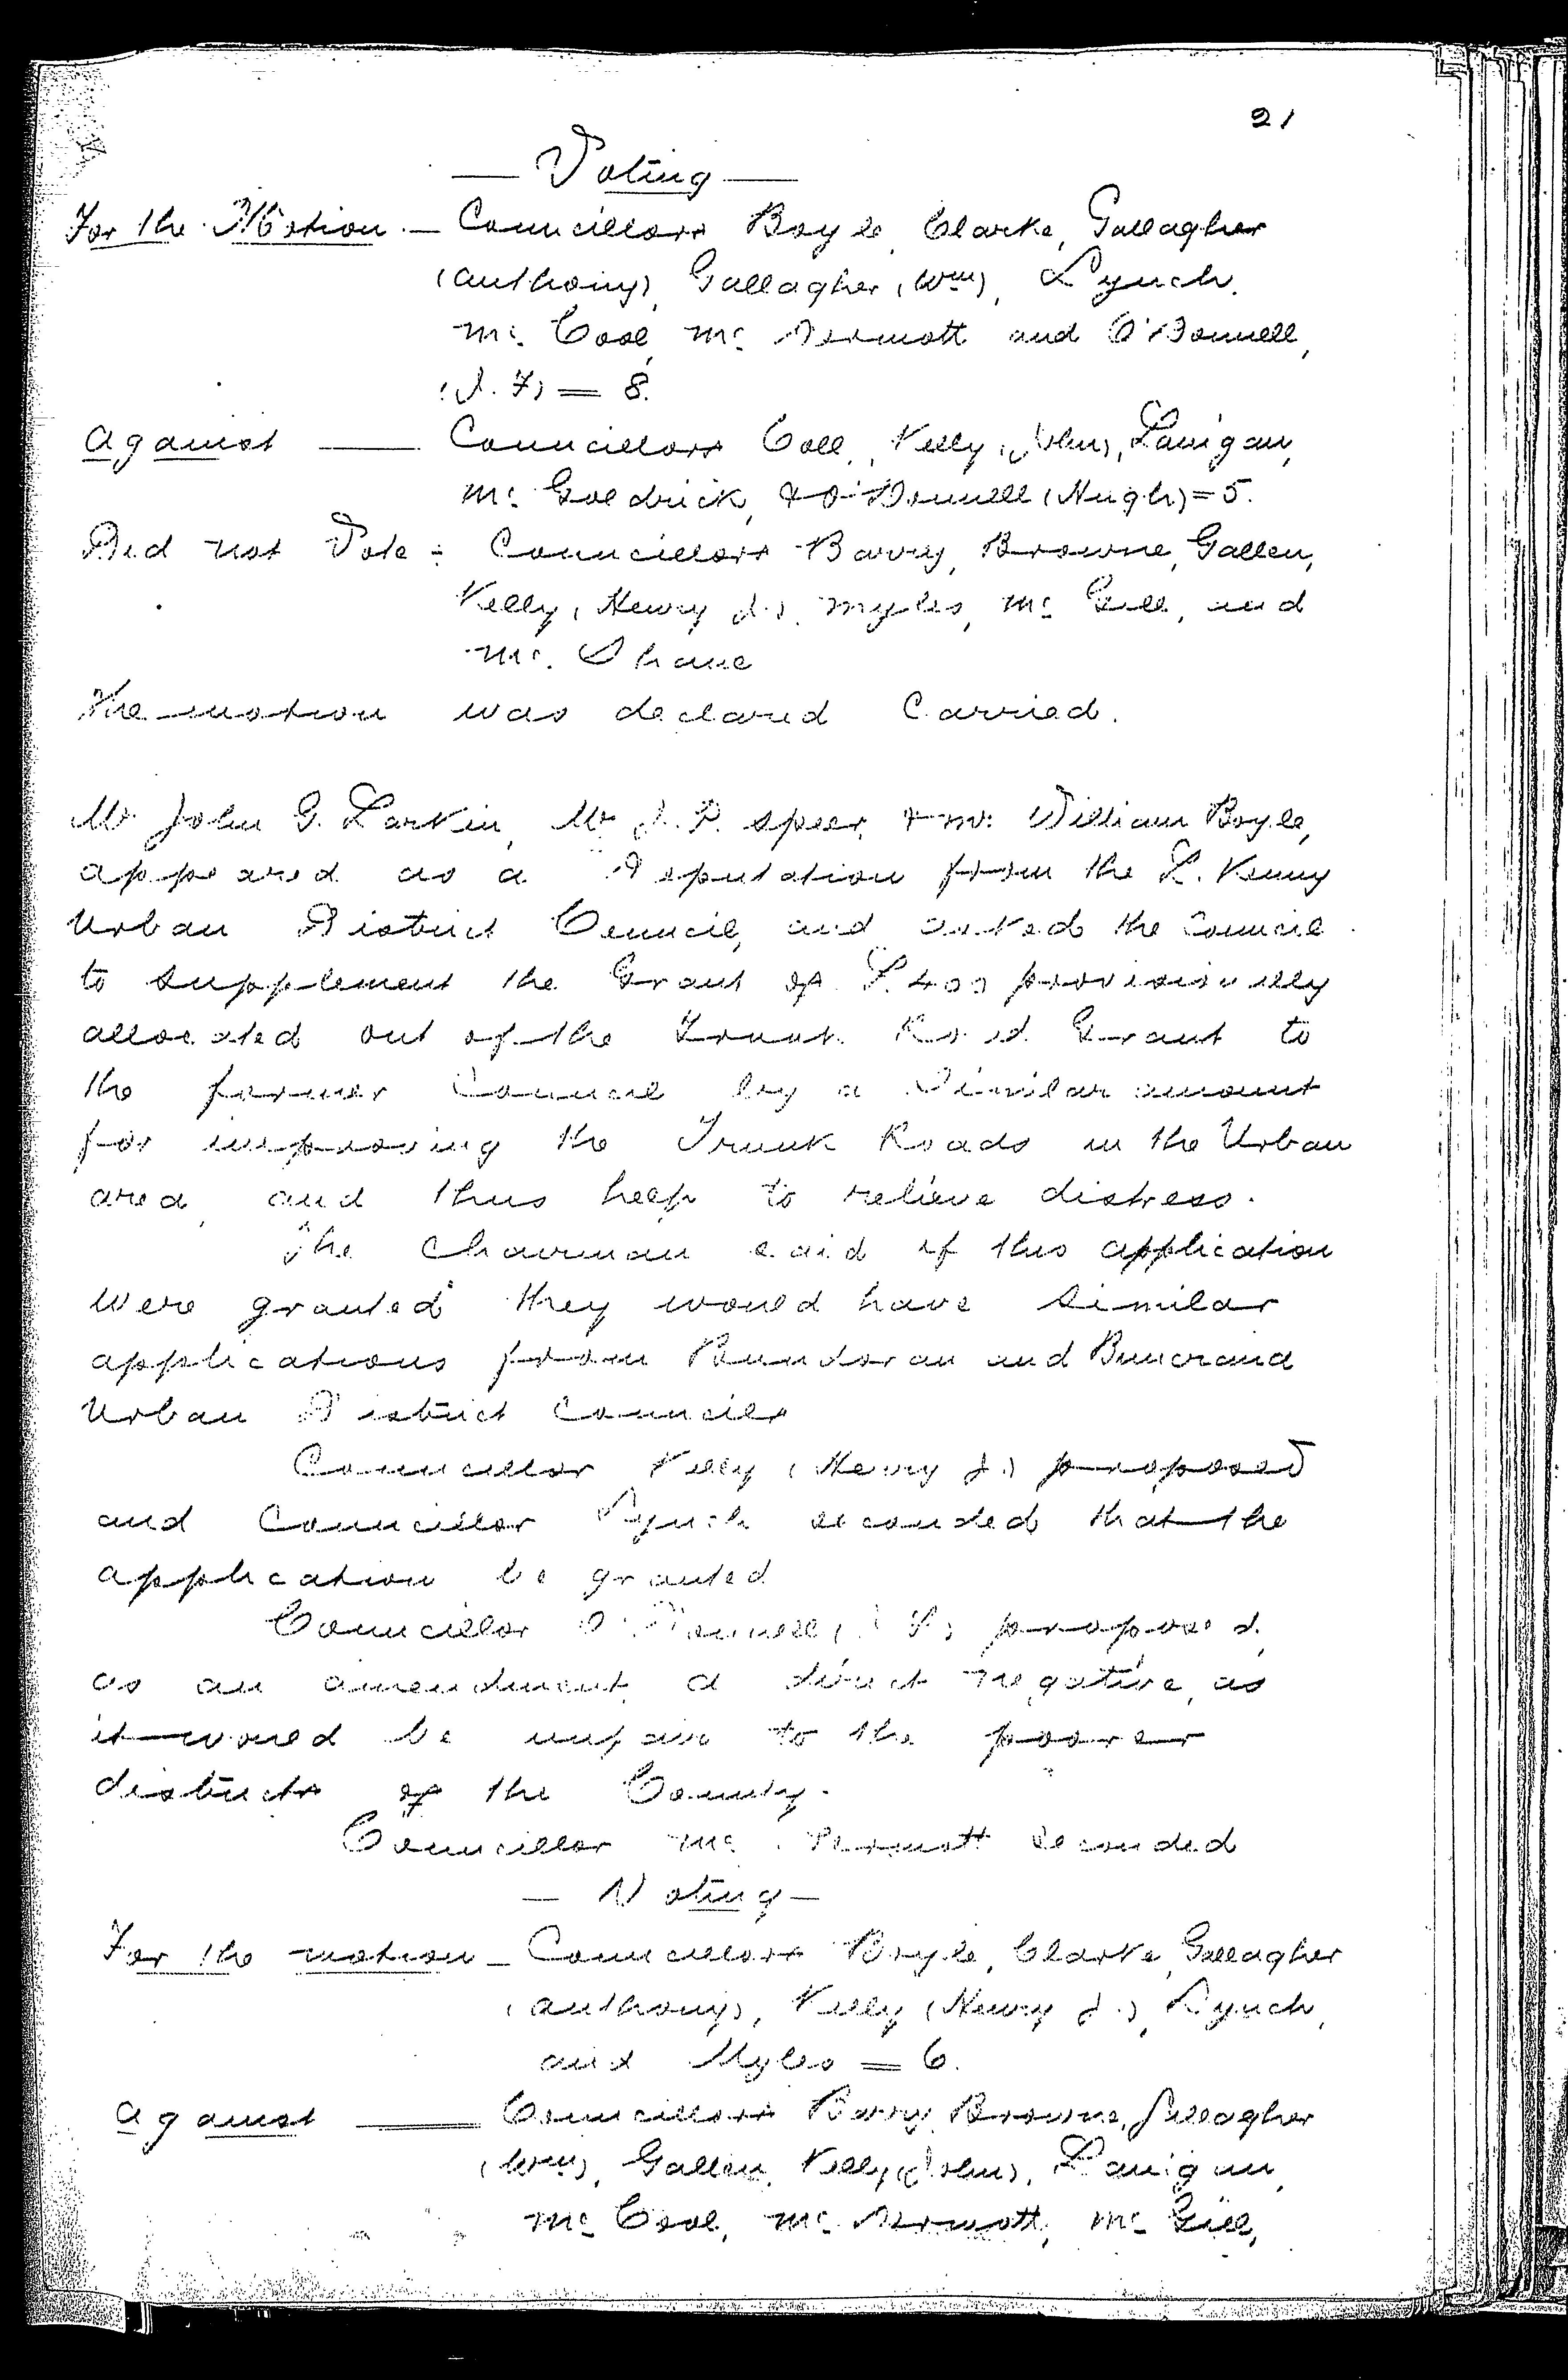 21
— Voting —
For the Motion — Councillors Boyle, Clarke, Gallagher
(Anthony), Gallagher (Wm), Lynch,
Mc. Cool, Mc Dermott and O'Donnell,
= 8.
Against — Councillors Coll, Kelly (John), Lanigan,
Mc. Goldrick, & O'Donnell (Hugh) = 5.
Did not Vote : Councillors Barry, Browne, Gallen,
Kelly (Henry J.), Myles, Mc Gill, and
Mc. Shane
The motion was declared Carried.
Mr John G. Larkin, Mr J.P. Speer, & Mr. William Boyle,
appeared as a Deputation from the L. Kenny
Urban District Council, and asked the Council
to supplement the Grant of £400 provisionally
allocated out of the Trunk Road Grant to
the former Council by a similar amount
for improving the Trunk Roads in the Urban
area, and thus help to relieve distress.
The Chairman said if this application
were granted they would have similar
applications from Bundoran and Buncrana
Urban District Councils
Councillor Kelly (Henry J.) proposed
and Councillor Lynch seconded that the
application be granted
Councillor O'Donnell proposed,
as an amendment, a direct negative, as
it would be unfair to the poorer
districts of the County.
Councillor Mc. Dermott seconded
— Voting —
For the motion — Councillors Boyle, Clarke, Gallagher
(Anthony), Kelly (Henry J.), Lynch,
and Myles = 6.
Against — Councillors Barry, Browne, Gallagher
(Wm), Gallen, Kelly (John), Lanigan,
Mc Cool, Mc Dermott, Mc Gill,